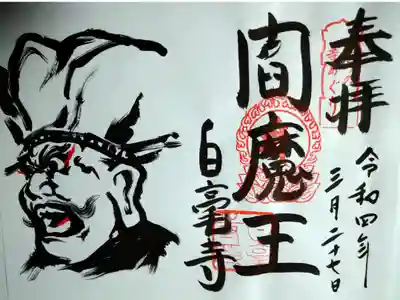 奉拝
令和四年
三月二十七日
閻魔王
白毫寺